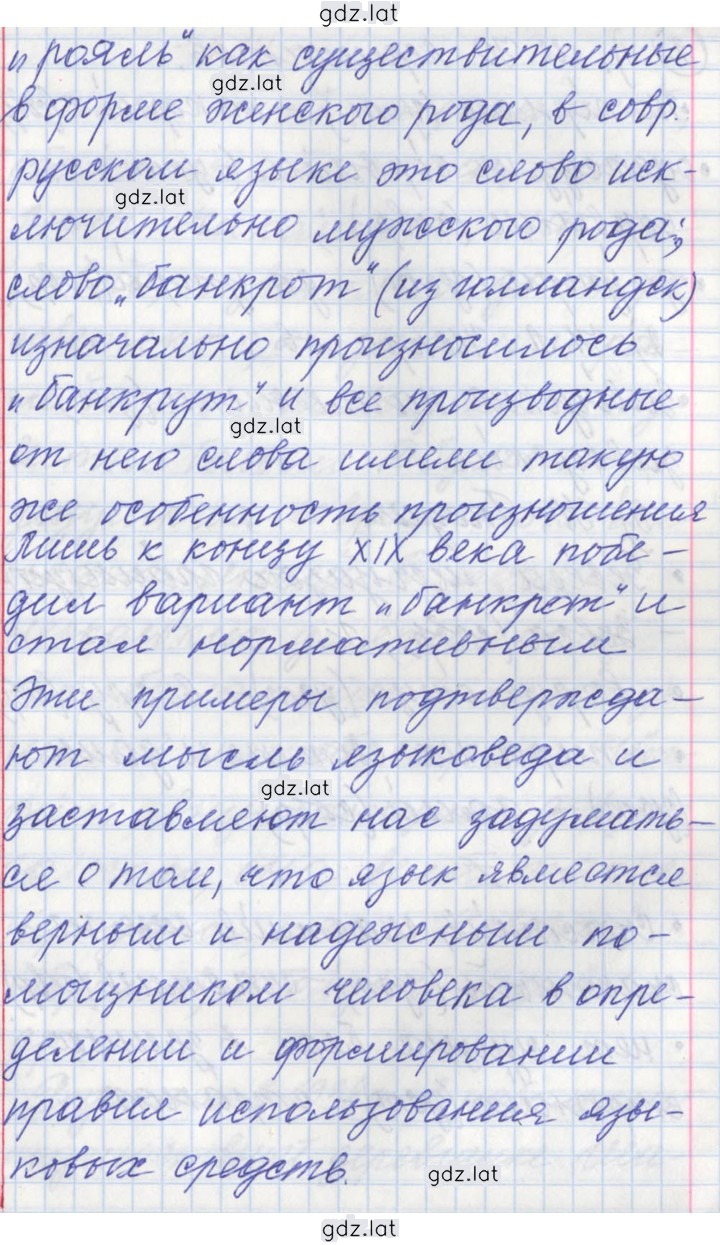 gdz.lat
„рояль“ как существительные
gdz.lat
в форме женского рода, в совр.
русском языке это слово иск-
gdz.lat
лючительно мужского рода;
слово „банкрот“ (из голландск)
изначально произносилось
„банкрут“ и все производные
gdz.lat
от него слова имели такую
же особенность произношения
Лишь к концу XIX века побе-
дил вариант „банкрот“ и
стал нормативным
Эти примеры подтвержда-
ют мысль языковеда и
gdz.lat
заставляют нас задумать-
ся о том, что язык является
верным и надежным по-
мощником человека в опре-
делении и формировании
правил использования язы-
ковых средств.
gdz.lat
gdz.lat